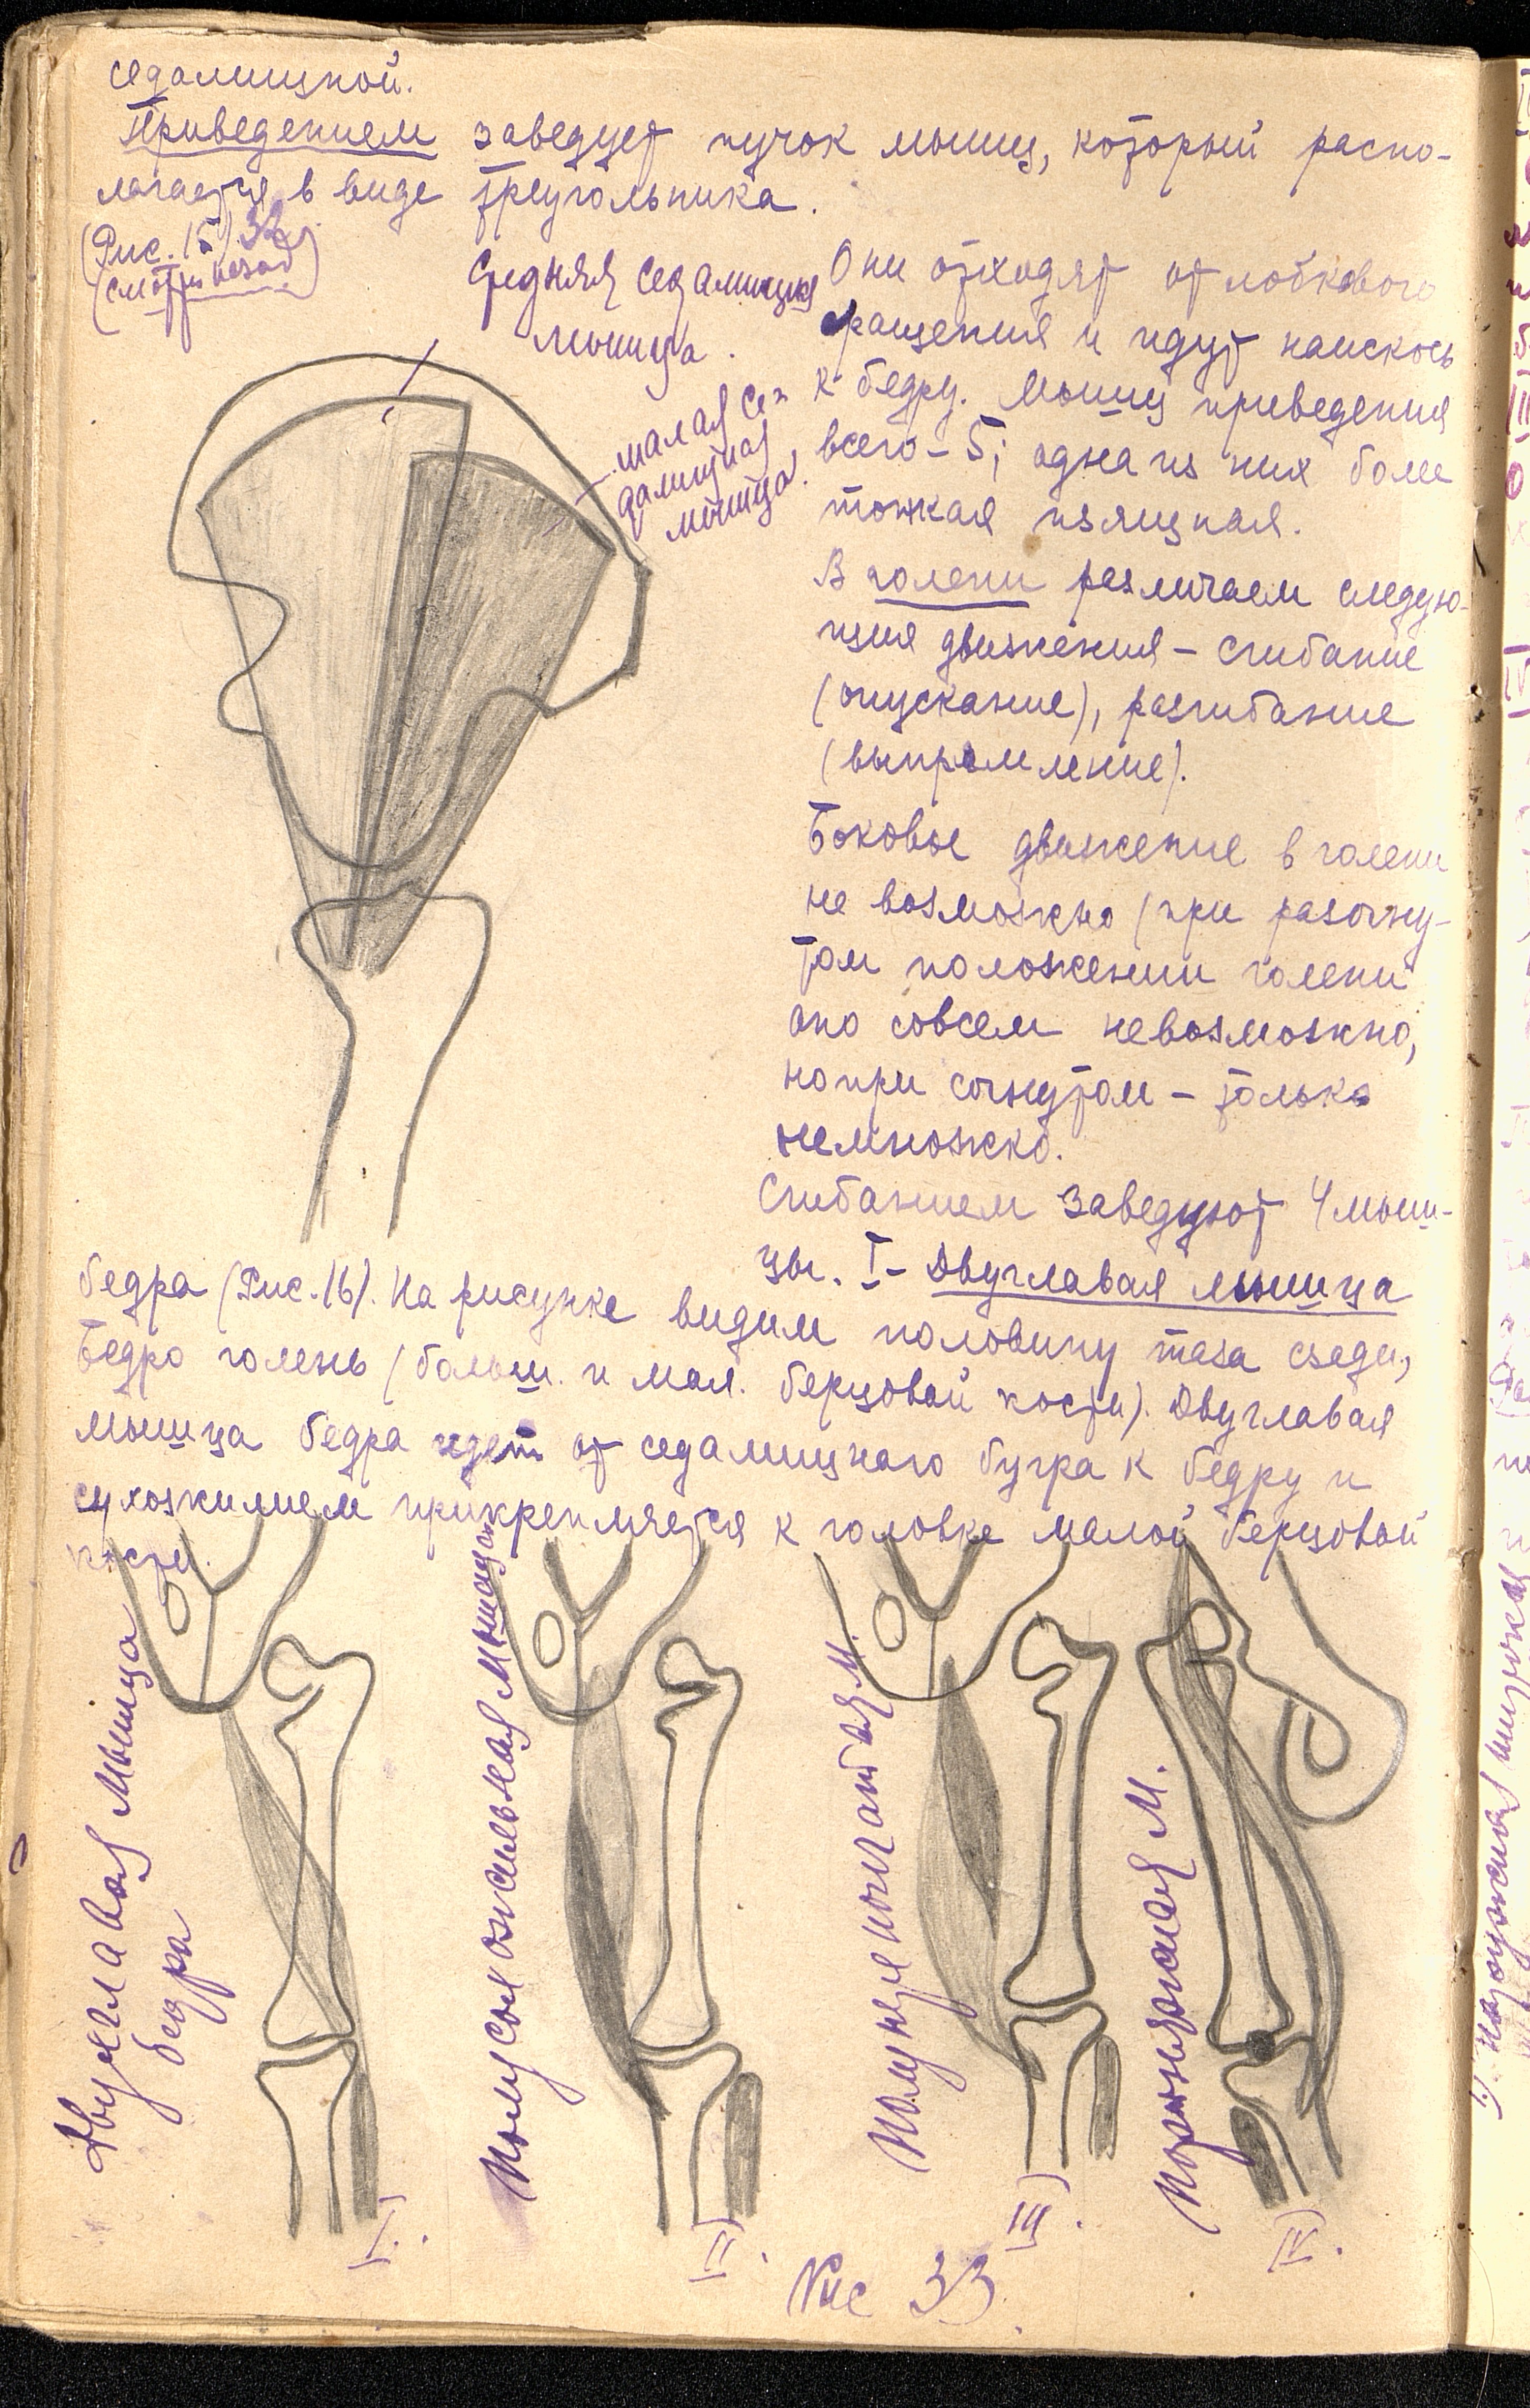 седалищной.
Приведением заведует пучок мышц, который распо-
лагается в виде треугольника.
(Рис. 15) 32
(смотри назад)
Средняя седалищная
мышца.
малая се-
далищная
мышца.
Они отходят от лобкового
сращения и идут наискось
к бедру. Мышц приведения
всего – 5; одна из них более
тонкая изящная.
В голени различаем следую-
щия движения – сгибание
(опускание), разгибание
(выпрямление).
Боковое движение в голени
не возможно (при разогну-
том положении голени
оно совсем невозможно,
но при согнутом – только
немножко.
Сгибанием заведуют 4 мыш-
цы. I – Двуглавая мышца
бедра (Рис. 16). На рисунке видим половину таза сзади,
бедро голень (больш. и мал. берцовой кости). Двуглавая
мышца бедра идет от седалищного бугра к бедру и
сухожилием прикрепляется к головке малой берцовой
кости.
Двуглавая мышца
бедра
I).
Полусухожильная мышца
II).
Полунерепончатая м.
III).
Портняжная м.
IV).
Рис 33.
наружная